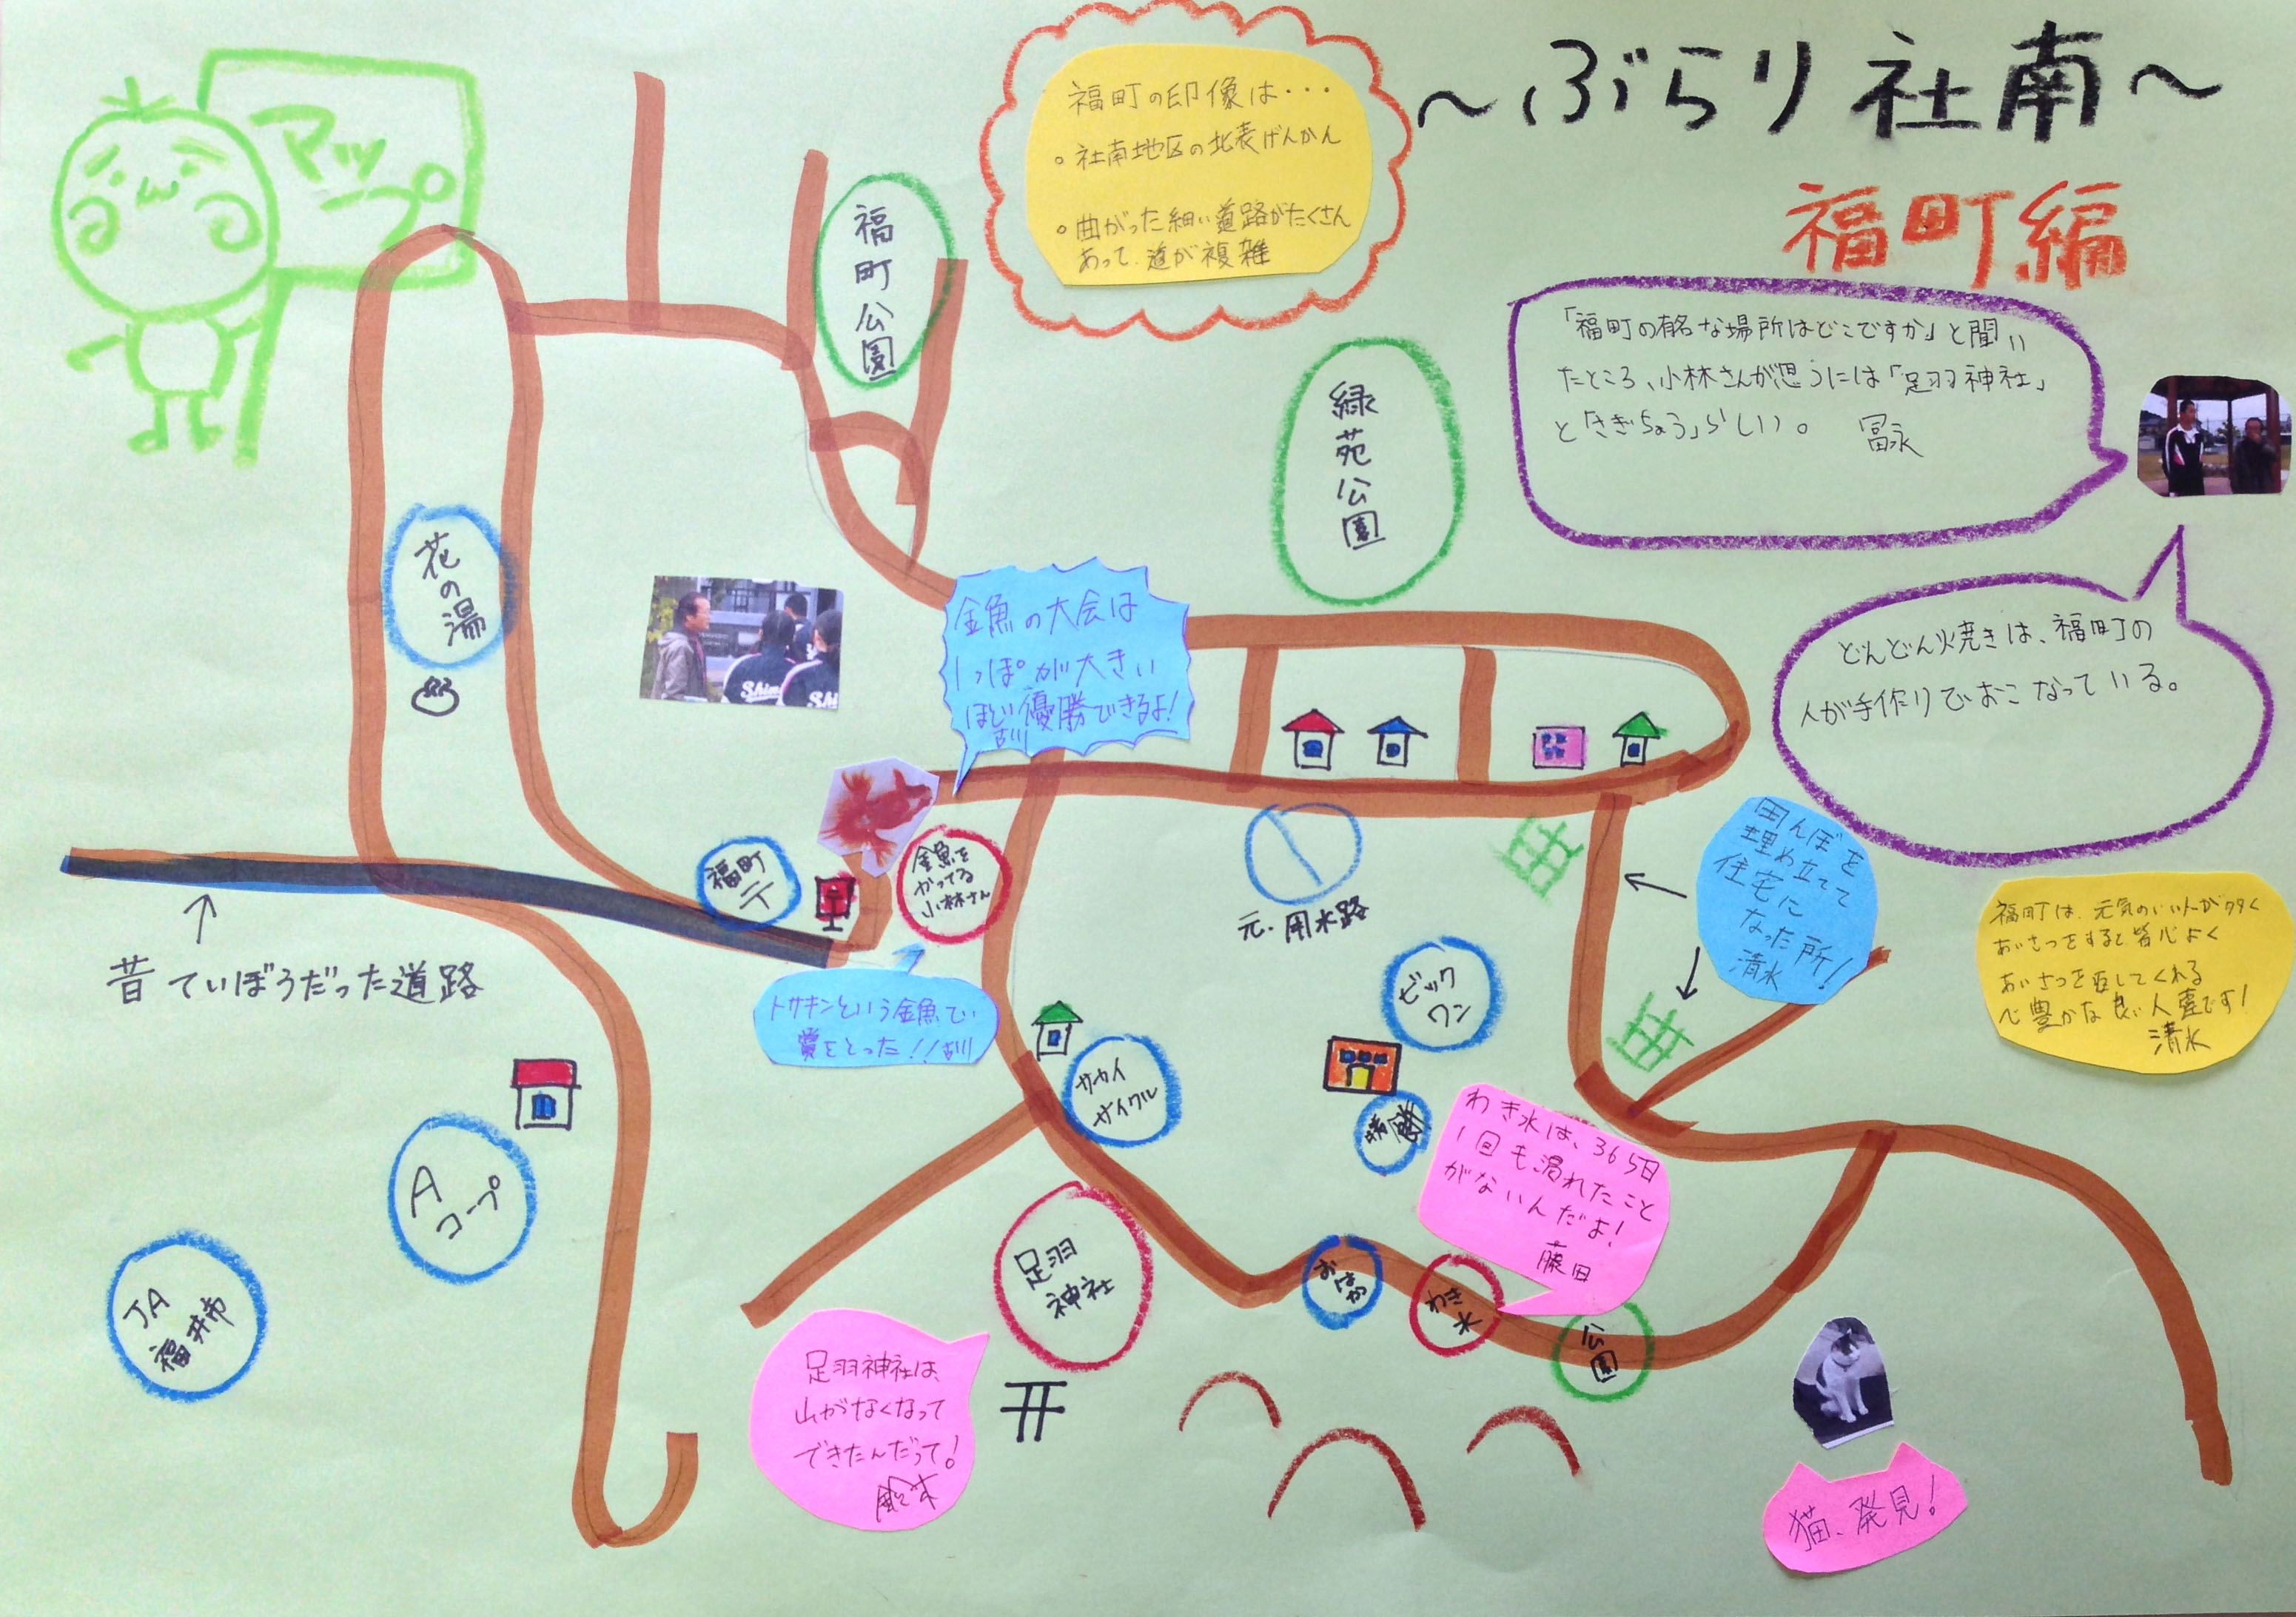 マップ
福町の印像は・・・
。社南地区の北表げんかん
。曲がった細い道路がたくさん
あって、道が複雑
～ぶらり社南～
福町編
「福町の有名な場所はどこですか」と聞い
たところ、小林さんが想うには「足羽神社」
と「さぎちょう」らしい。 冨永
どんどん火焼きは、福町の
人が手作りでおこなっている。
福町公園
緑苑公園
花の湯
金魚の大会は
しっぽが大きい
ほど優勝できるよ!
吉川
福町
〒
金魚を
かってる
小林さん
元・用水路
田んぼを
埋め立てて
住宅に
なった所!
清水
福町は、元気のいい人が多く
あいさつをすると皆心よく
あいさつを返してくれる
心豊かな良い人達です!
清水
昔ていぼうだった道路
トサキンという金魚で
賞をとった!!吉川
ビック
ワン
サカイ
サイクル
餅
わき水は、365日
1回も涸れたこと
がないんだよ!
藤田
A
コープ
JA
福井市
足羽
神社
おはか
わき
水
公園
足羽神社は、
山がなくなって
できたんだって!
鈴木
猫、発見!